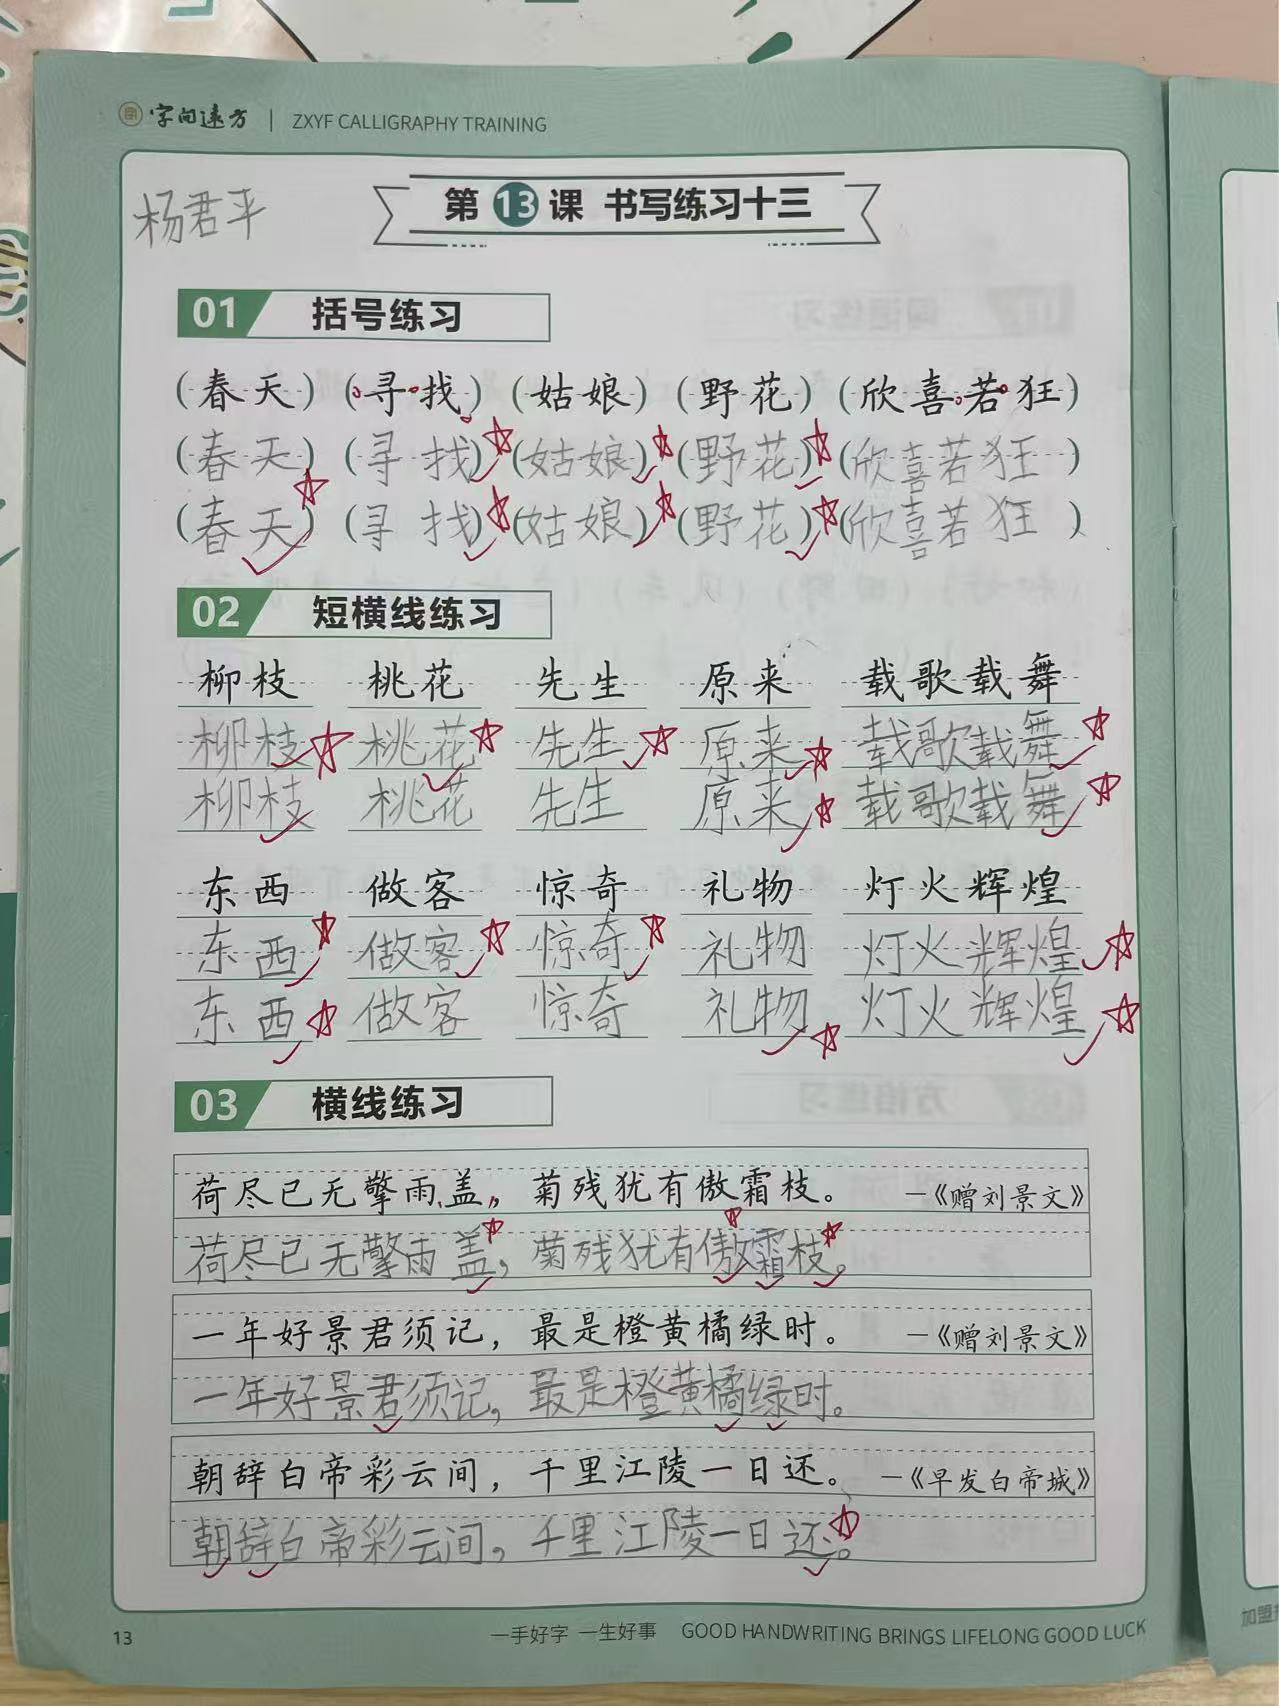 字间速方 | ZXYF CALLIGRAPHY TRAINING
杨君平
第 13 课 书写练习十三
01 括号练习
(春天) (寻找) (姑娘) (野花) (欣喜若狂)
(春天) (寻找) (姑娘) (野花) (欣喜若狂)
(春天) (寻找) (姑娘) (野花) (欣喜若狂)
02 短横线练习
柳枝 桃花 先生 原来 载歌载舞
柳枝 桃花 先生 原来 载歌载舞
柳枝 桃花 先生 原来 载歌载舞
东西 做客 惊奇 礼物 灯火辉煌
东西 做客 惊奇 礼物 灯火辉煌
东西 做客 惊奇 礼物 灯火辉煌
03 横线练习
荷尽已无擎雨盖，菊残犹有傲霜枝。 —《赠刘景文》
荷尽已无擎雨盖，菊残犹有傲霜枝。
一年好景君须记，最是橙黄橘绿时。 —《赠刘景文》
一年好景君须记，最是橙黄橘绿时。
朝辞白帝彩云间，千里江陵一日还。 —《早发白帝城》
朝辞白帝彩云间，千里江陵一日还。
13 一手好字 一生好事 GOOD HANDWRITING BRINGS LIFELONG GOOD LUCK
加盟